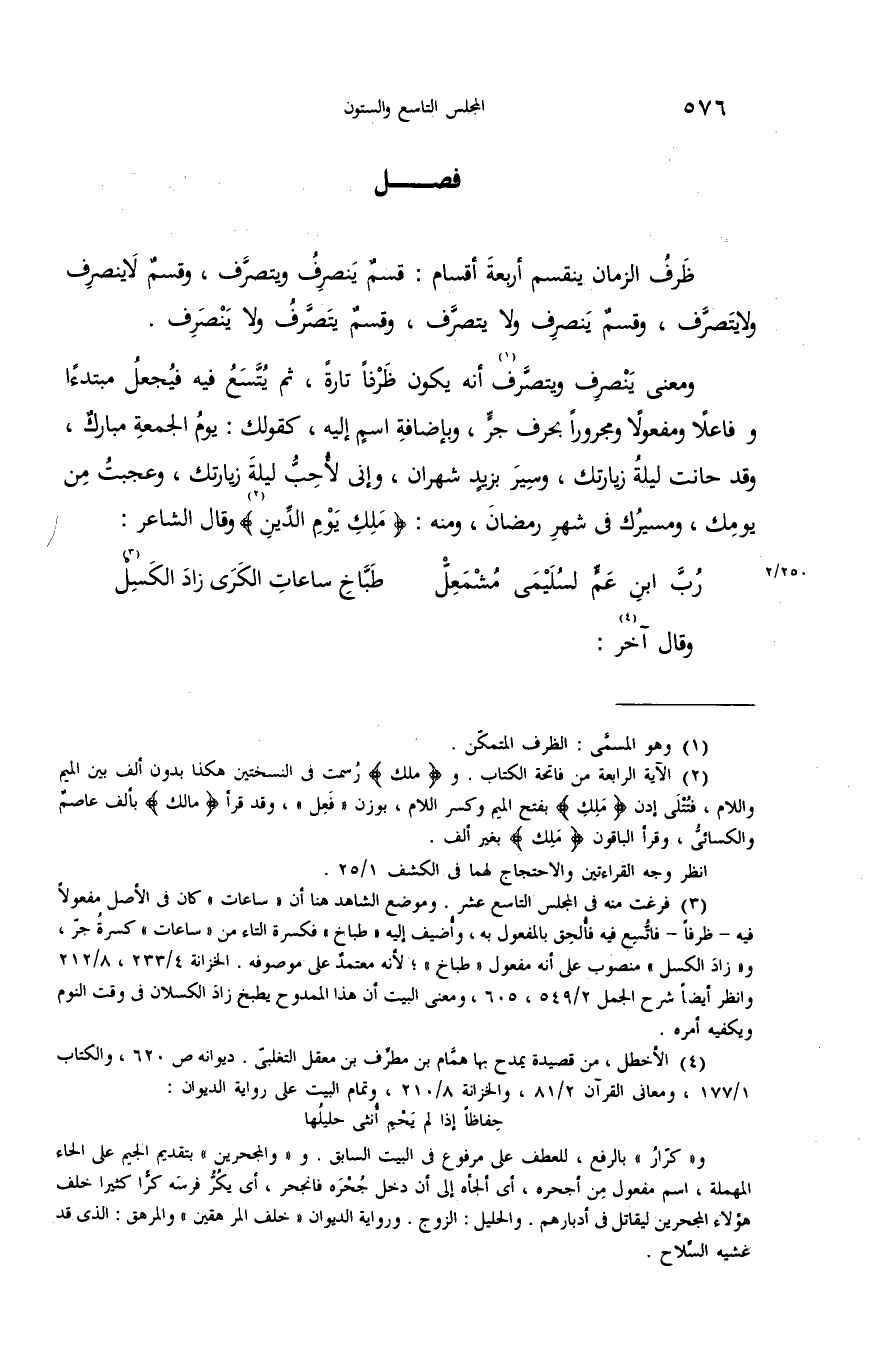 ٥٧٦ المجلس التاسع والستون
فصـــــل
ظَرفُ الزمان ينقسم أربعةَ أقسام : قسمٌ يَنصرِفُ ويتصرَّف ، وقسمٌ لَاينصرِف
ولايَتَصرَّف ، وقسمٌ يَنصرِف ولا يتصرَّف ، وقسمٌ يتَصَّرفُ ولا يَنْصَرِف .
ومعنى يَنْصرِف ويتصرَّف(١) أنه يكون ظَرْفاً تارةً ، ثم يُتَّسَعُ فيه فيُجعلُ مبتدءًا
و فاعلًا ومفعولًا ومجروراً بحرف جرٍّ ، وبإضافةِ اسمٍ إليه ، كقولك : يومُ الجمعةِ مباركٌ ،
وقد حانت ليلةُ زيارتك ، وسِيرَ بزيدٍ شهران ، وإنى لأُحِبُّ ليلةَ زيارتك ، وعجبتُ مِن
يومِك ، ومسيرُك فى شهرِ رمضانَ ، ومنه : ﴿ مَلِكِ يَوْمِ الدِّينِ ﴾(٢) وقال الشاعر :
٢/٢٥٠ رُبَّ ابنِ عَمٍّ لسُلَيْمَى مُشْمَعِلّْ طَبَّاخِ ساعاتِ الكَرَى زادَ الكَسِلْ(٣)
وقال آخر(٤) :
(١) وهو المسمَّى : الظرف المتمكّن .
(٢) الآية الرابعة من فاتحة الكتاب . و ﴿ ملك ﴾ رُسمت فى النسختين هكذا بدون ألف بين الميم
واللام ، فتُتْلَى إدن ﴿ مَلِكِ ﴾ بفتح الميم وكسر اللام ، بوزن « فَعِل » ، وقد قرأ ﴿ مالك ﴾ بألف عاصمٌ
والكسائىُّ ، وقرأ الباقون ﴿ مَلِك ﴾ بغير ألف .
انظر وجه القراءتين والاحتجاج لهما فى الكشف ٢٥/١ .
(٣) فرغت منه فى المجلس التاسع عشر . وموضع الشاهد هنا أن « ساعات » كان فى الأصل مفعولاً
فيه – ظرفاً – فاتُّسِع فيه فأُلحِق بالمفعول به ، وأُضيف إليه « طباخ » فكسرة التاء من « ساعات » كسرةُ جرّ ،
و« زادَ الكسل » منصوب على أنه مفعول « طباخ » ؛ لأنه معتمدٌ على موصوفه . الخزانة ٢٣٣/٤ ، ٢١٢/٨
وانظر أيضاً شرح الجمل ٥٤٩/٢ ، ٦٠٥ ، ومعنى البيت أن هذا الممدوح يطبخ زادَ الكسلان فى وقت النوم
ويكفيه أمره .
(٤) الأخطل ، من قصيدة يمدح بها همَّام بن مطرِّف بن معقل التغلبىّ . ديوانه ص ٦٢٠ ، والكتاب
١٧٧/١ ، ومعانى القرآن ٨١/٢ ، والخزانة ٢١٠/٨ ، وتمام البيت على رواية الديوان :
حِفاظاً إذا لم يَحْمِ أُنثى حليلُها
و« كرّارُ » بالرفع ، للعطف على مرفوع فى البيت السابق . و « والمجحرين » بتقديم الجيم على الحاء
المهملة ، اسم مفعول مِن أجحره ، أى ألجأه إلى أن دخل جُحْرَه فانجحر ، أى يكُرُّ فرسَه كرًّا كثيرا خلف
هؤلاء المجحرين ليقاتل فى أدبارهم . والحليل : الزوج . ورواية الديوان « خلف المرهقين » والمرهق : الذى قد
غشيه السِّلاح .